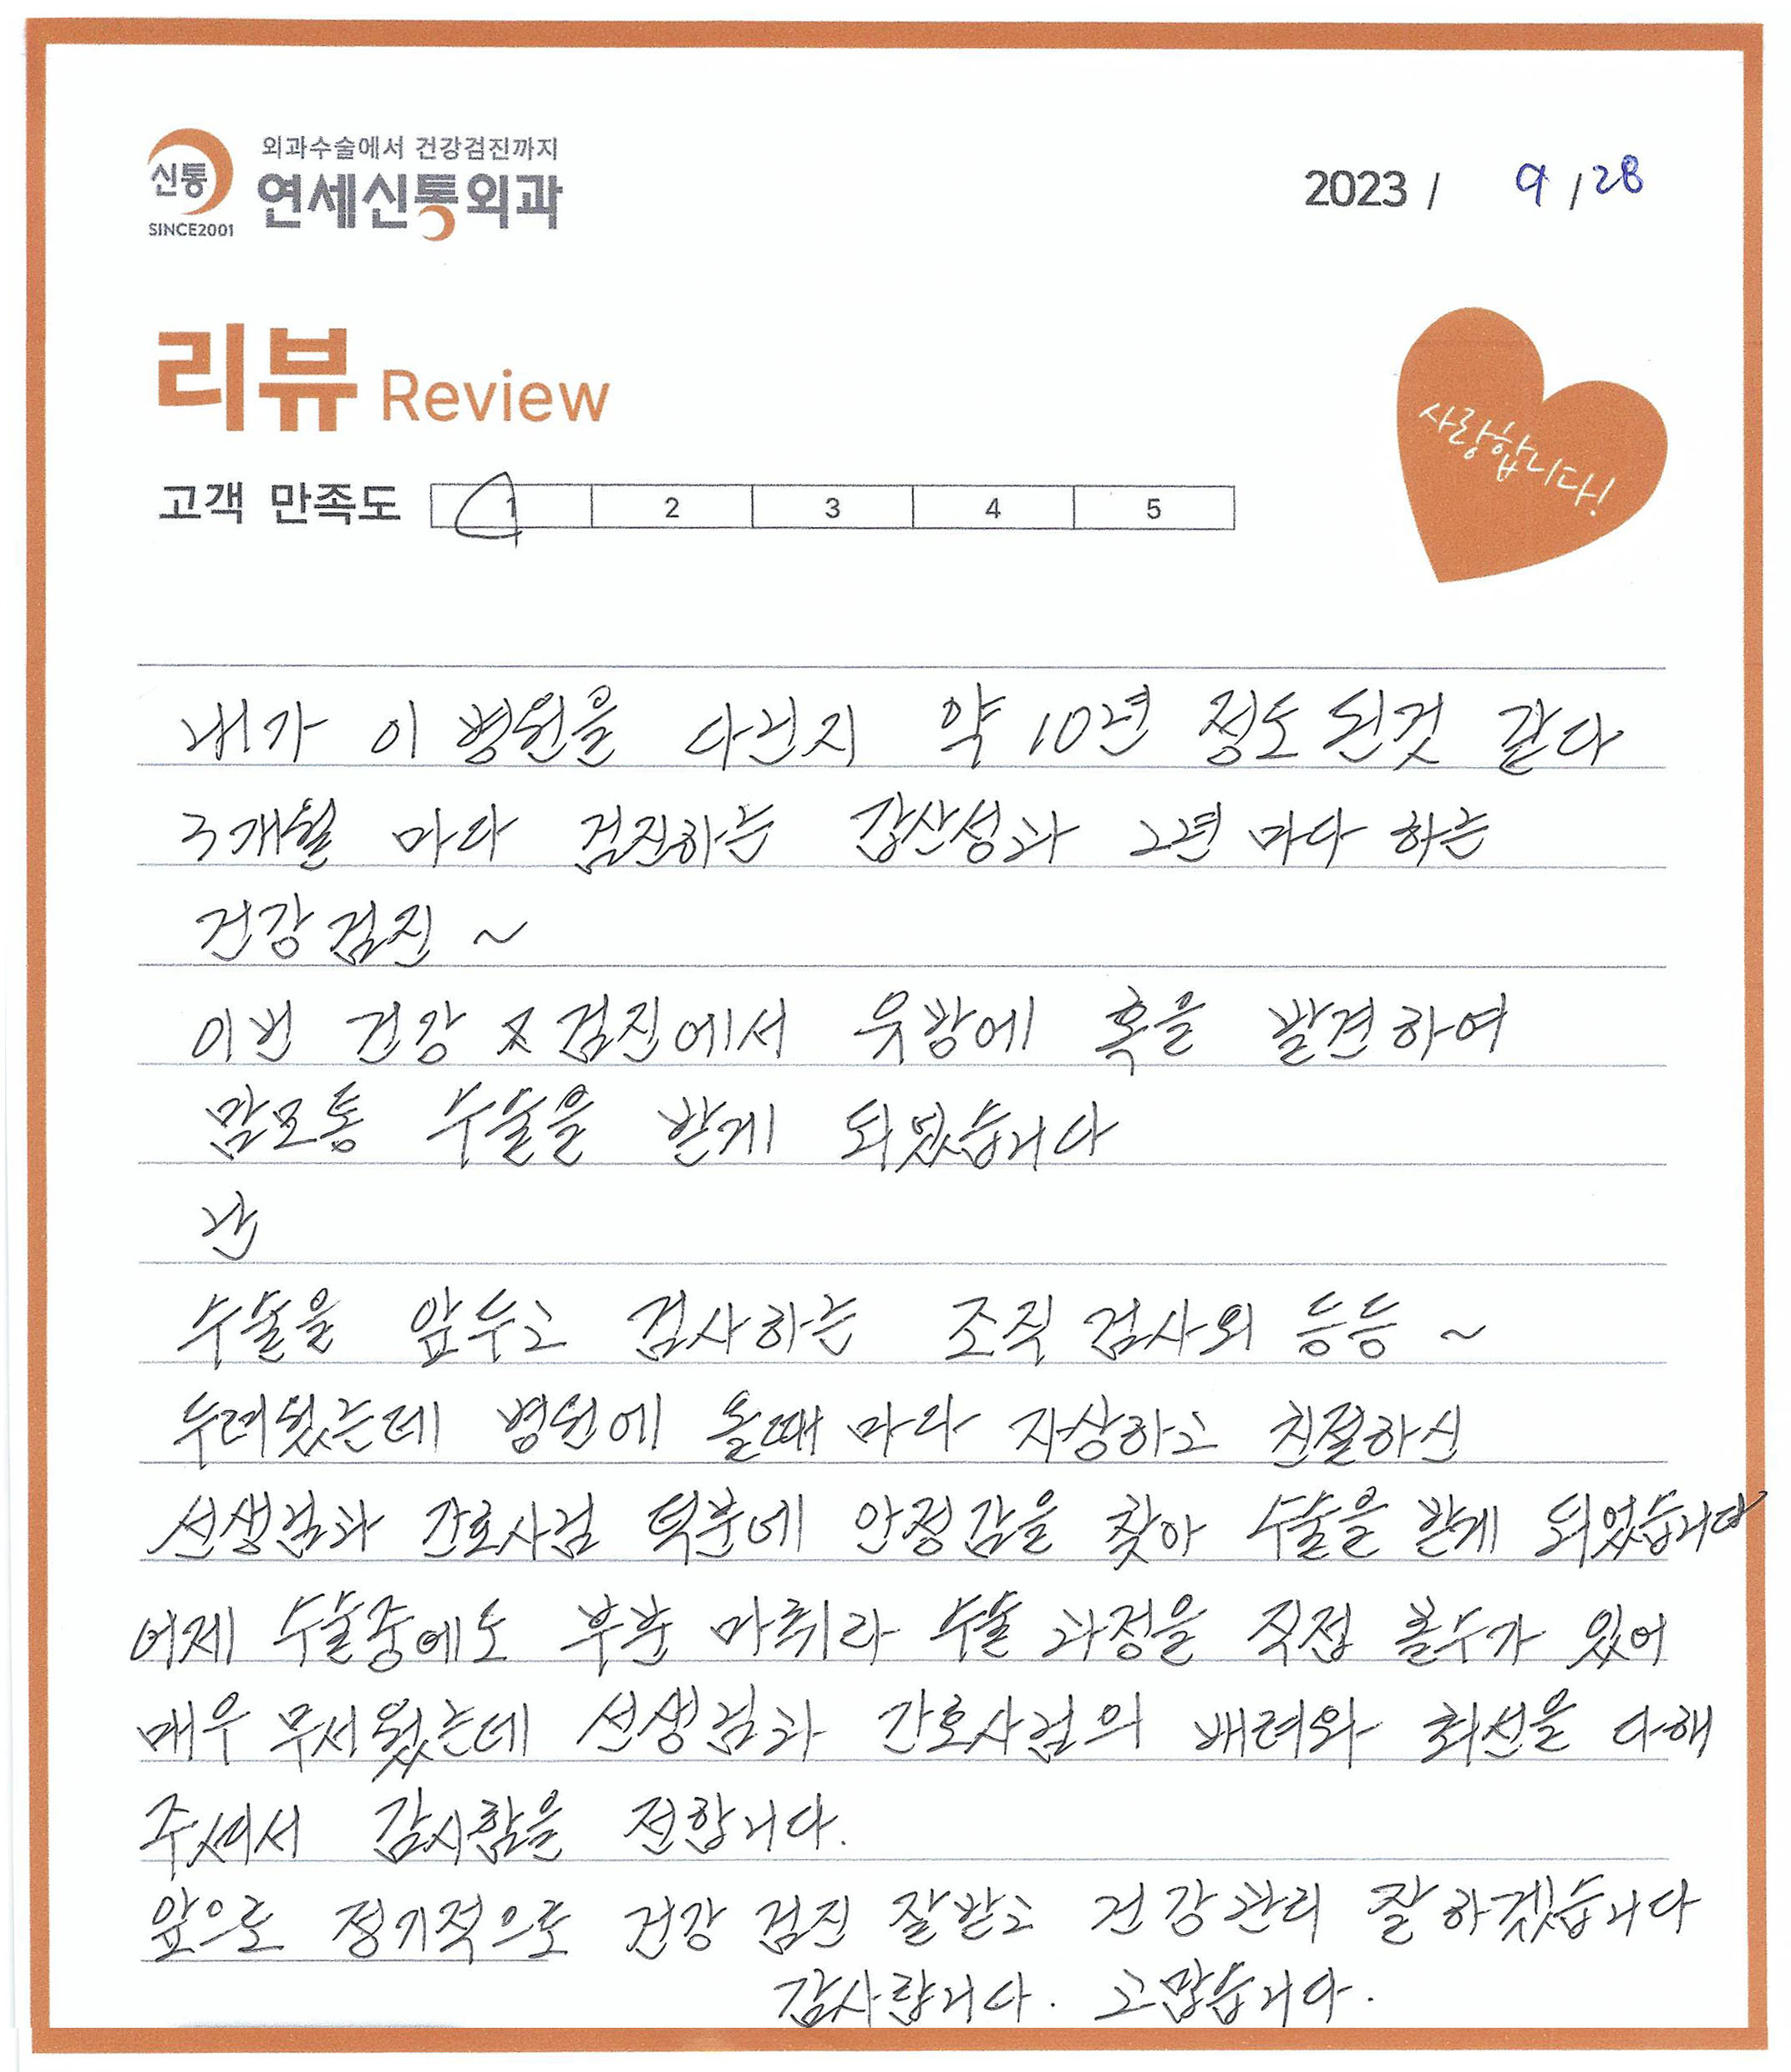 외과수술에서 건강검진까지
신통
연세신통외과
SINCE2001
2023 / 9 / 28
리뷰 Review
사랑합니다!
고객 만족도 1 2 3 4 5
내가 이 병원을 다닌지 약 10년 정도 된것 같다
3개월 마다 검진하는 갑산성과 2년 마다 하는
건강검진 ~
이번 건강 검진에서 유방에 혹을 발견하여
맘모톰 수술을 받게 되었습니다
난
수술을 앞두고 검사하는 조직 검사외 등등 ~
두려웠는데 병원에 올때 마다 자상하고 친절하신
선생님과 간호사님 덕분에 안정감을 찾아 수술을 받게 되었습니다
어제 수술중에도 부분 마취라 수술 과정을 직접 볼수가 있어
매우 무서웠는데 선생님과 간호사님의 배려와 최선을 다해
주셔서 감사함을 전합니다.
앞으로 정기적으로 건강 검진 잘받고 건강관리 잘 하겠습니다
감사합니다. 고맙습니다.